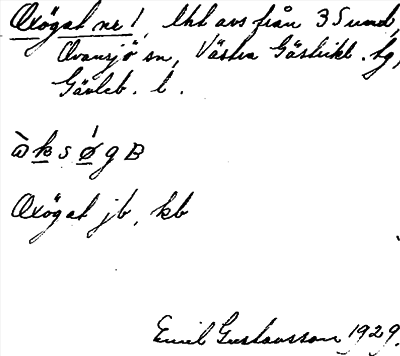 Oxögat nr 1, lht avs från 3 Sund,
Ovansjö sn, Västra Gästrikl. tg,
Gävleb. l.
ὼksǿgB
Oxögat jb, kb
Emil Gustavsson 1929.